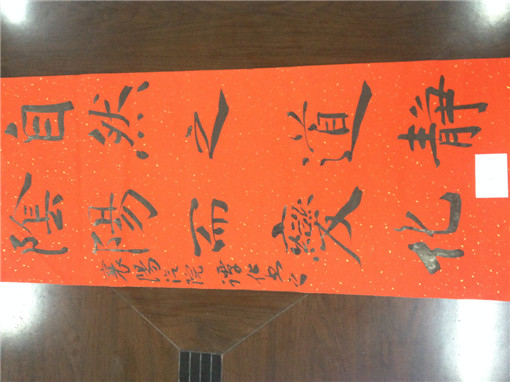 自然之道靜
陰陽而變化
襄陽